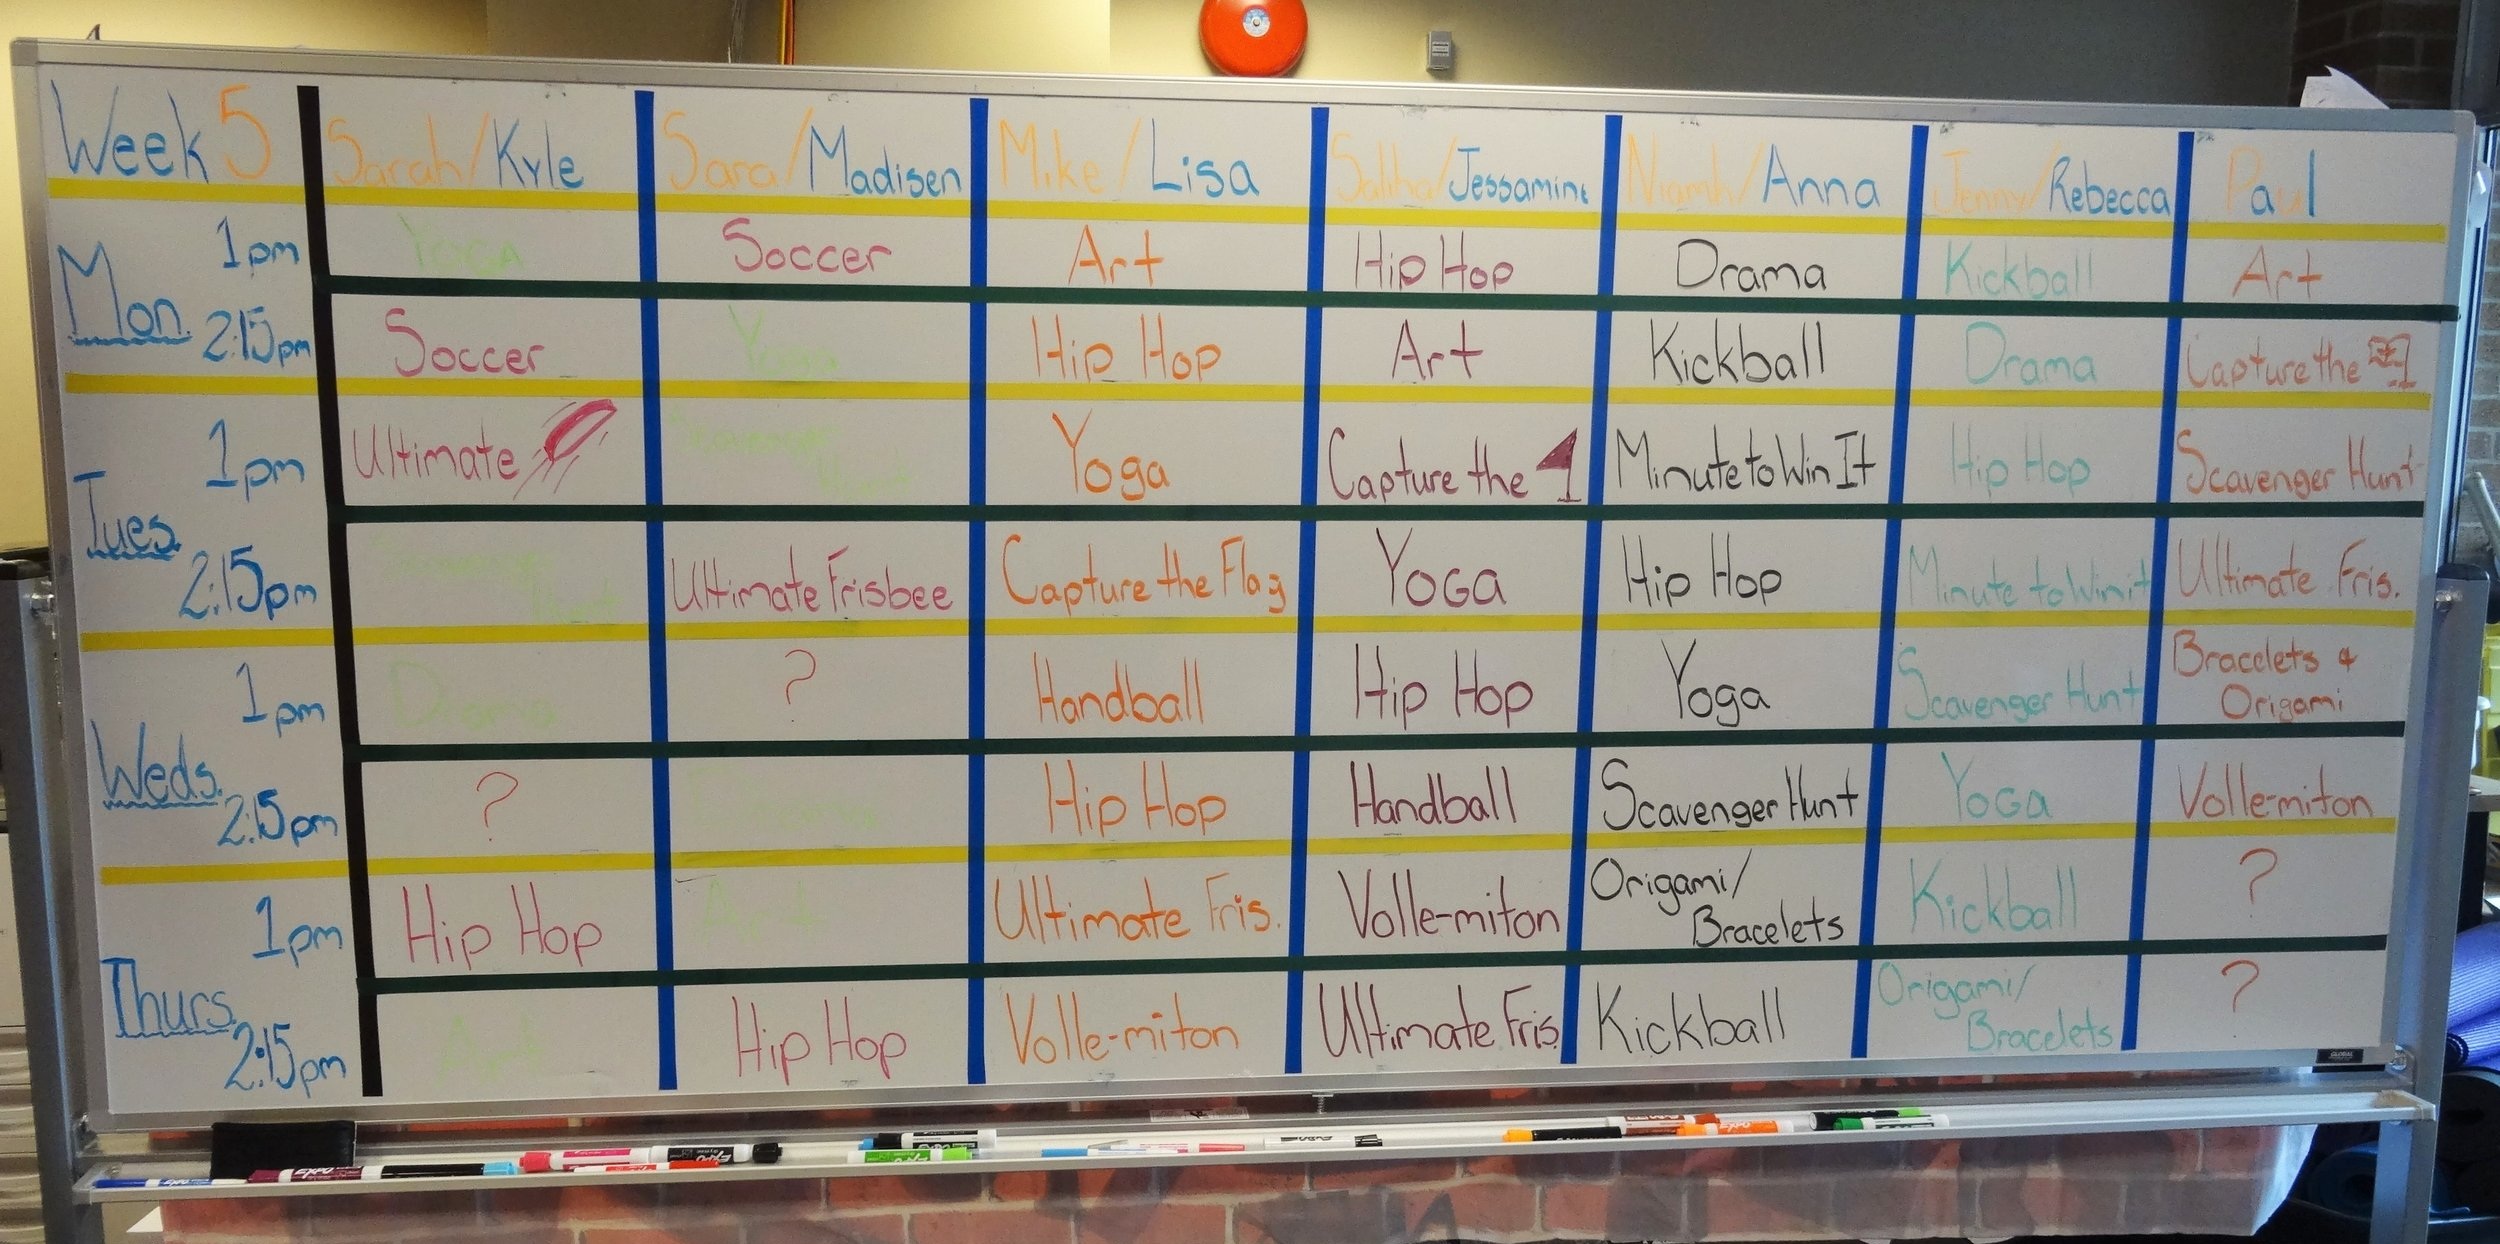 Week 5 Sarah/Kyle Sara/Madisen Mike/Lisa Saliha/Jessamine Niamh/Anna Jenny/Rebecca Paul
Mon.
1pm Yoga Soccer Art Hip Hop Drama Kickball Art
2:15pm Soccer Yoga Hip Hop Art Kickball Drama Capture the
Tues.
1pm Ultimate Scavenger Hunt Yoga Capture the Minute to Win It Hip Hop Scavenger Hunt
2:15pm Scavenger Hunt Ultimate Frisbee Capture the Flag YOGA Hip Hop Minute to Win it Ultimate Fris.
Weds.
1pm Drama ? Handball Hip Hop Yoga Scavenger Hunt Bracelets &
Origami
2:15pm ? Drama Hip Hop Handball Scavenger Hunt YOGA Volle-miton
Thurs.
1pm Hip Hop Art Ultimate Fris. Volle-miton Origami/
Bracelets Kickball ?
2:15pm Art Hip Hop Volle-miton Ultimate Fris. Kickball Origami/
Bracelets ?
GLOBAL